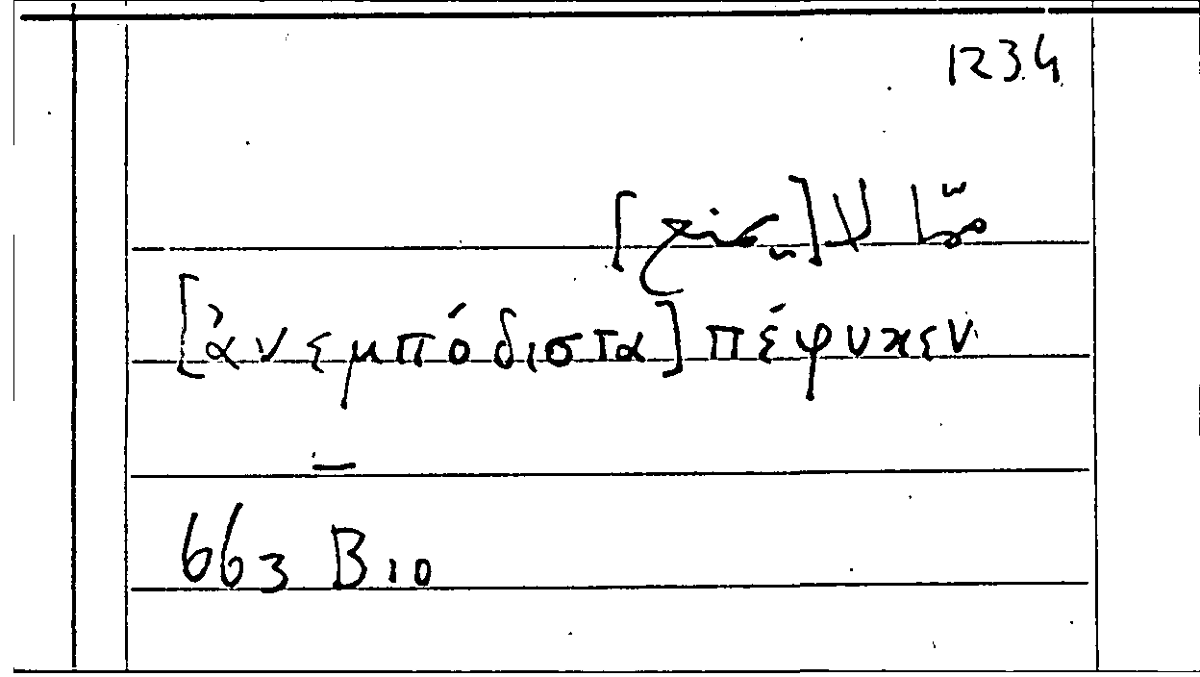 1234
لا
[ἀνεμπόδιστα] πέφυκεν
663 B 10